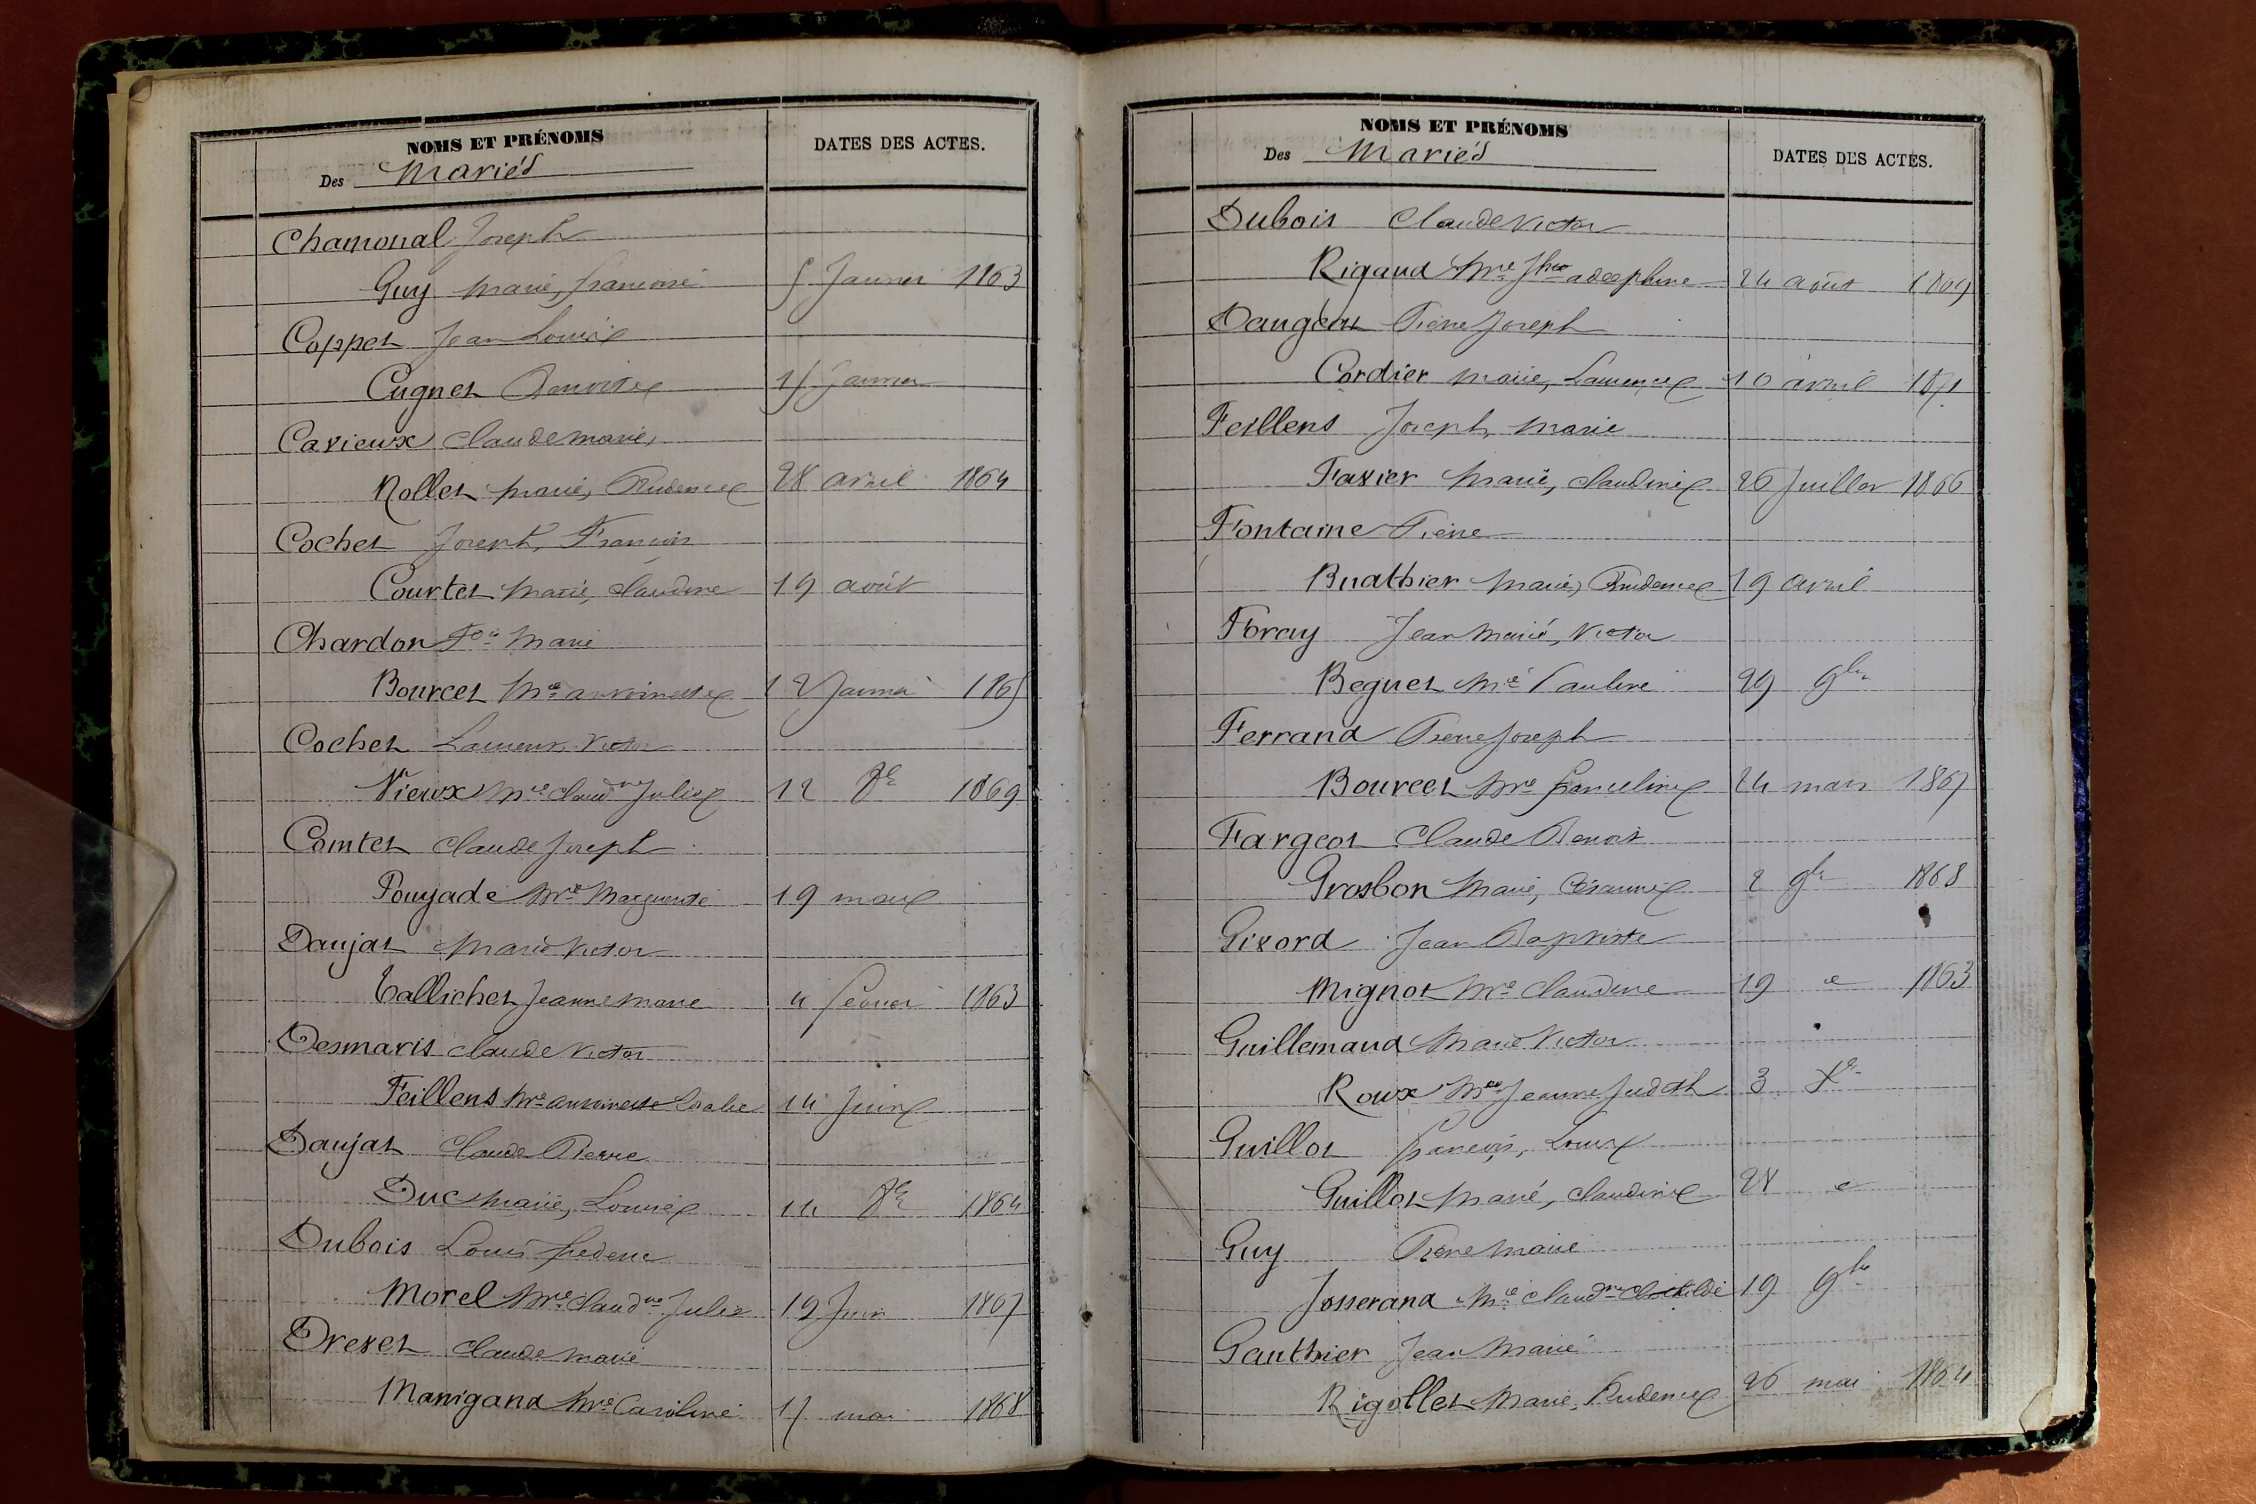 NOMS ET PRÉNOMS
Des Mariés
DATES DES ACTES.
Chamonal Joseph
Guy Marie, françoise 5 Janvier 1863
Coppet Jean Louis
Cugnet Benoite 15 Janvier
Cavieux Claude Marie,
Nollet Marie, Prudence 28 avril 1864
Cochet Joseph, François
Courtet Marie, Claudine 19 août
Chardon Fois Marie
Bourcet Mie antoinette 12 Janvier 1865
Cochet Laurent Victor
Vieux Mie Claudne Julie 12 1869
Comtet Claude Joseph
Pouyade Mie Marguerite 19 mars
Daujat Marie Victor
Tallichet Jeanne Marie 4 février 1863
Desmaris Claude Victor
Feillens Mie antoinette 14 Juin
Daujat Claude Pierre
Duc Marie, Louise 14 1864
Dubois Louis frederic
Morel Mie Claudne Julie 19 Juin 1867
Drevet Claude Marie
Manigand Mie Caroline 17 mai 1868
NOMS ET PRÉNOMS
Des Mariés
DATES DES ACTES.
Dubois Claude Victor
Rigaud Mie adelphine 24 août 1869
Daugeat Pierre Joseph
Cordier Marie, Laurence 10 avril 1871
Feillens Joseph, Marie
Favier Marie, Claudine 26 Juillet 1866
Fontaine Pierre
Buathier Marie, Prudence 19 avril
Foray Jean Marie, Victor
Beguet Mie Pauline 29 9bre
Ferrand Pierre Joseph
Bourcet Mie franceline 24 mars 1867
Fargeot Claude Benoit
Grosbon Marie, Césarine 2 9bre 1868
Givord Jean Baptiste
Mignot Mie Claudine 19 1863
Guillemaud Marie Victor
Roux Mie Jeanne Judith 3 Xbre
Guillot françois, Louis
Guillot Marie, Claudine 28
Guy Pierre Marie
Josserand Mie Claudne Clotilde 19 9bre
Gauthier Jean Marie
Rigollet Marie, Prudence 26 mai 1864